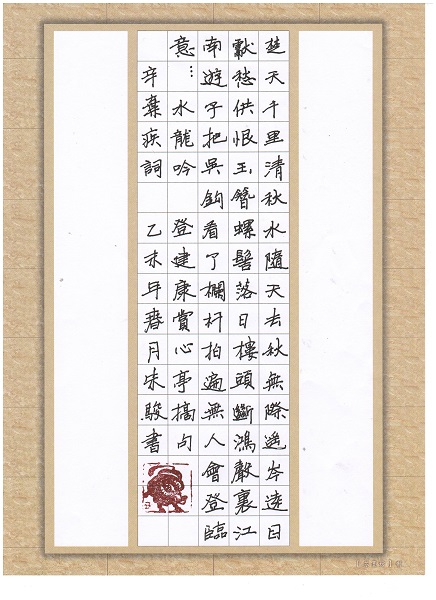 楚天千里清秋水隨天去秋無際遙岑遠目
獻愁供恨玉簪螺髻落日樓頭斷鴻聲裏江
南遊子把吳鉤看了欄杆拍遍無人會登臨
意…水龍吟 登建康賞心亭摘句
辛棄疾詞 乙未年春月朱駿書